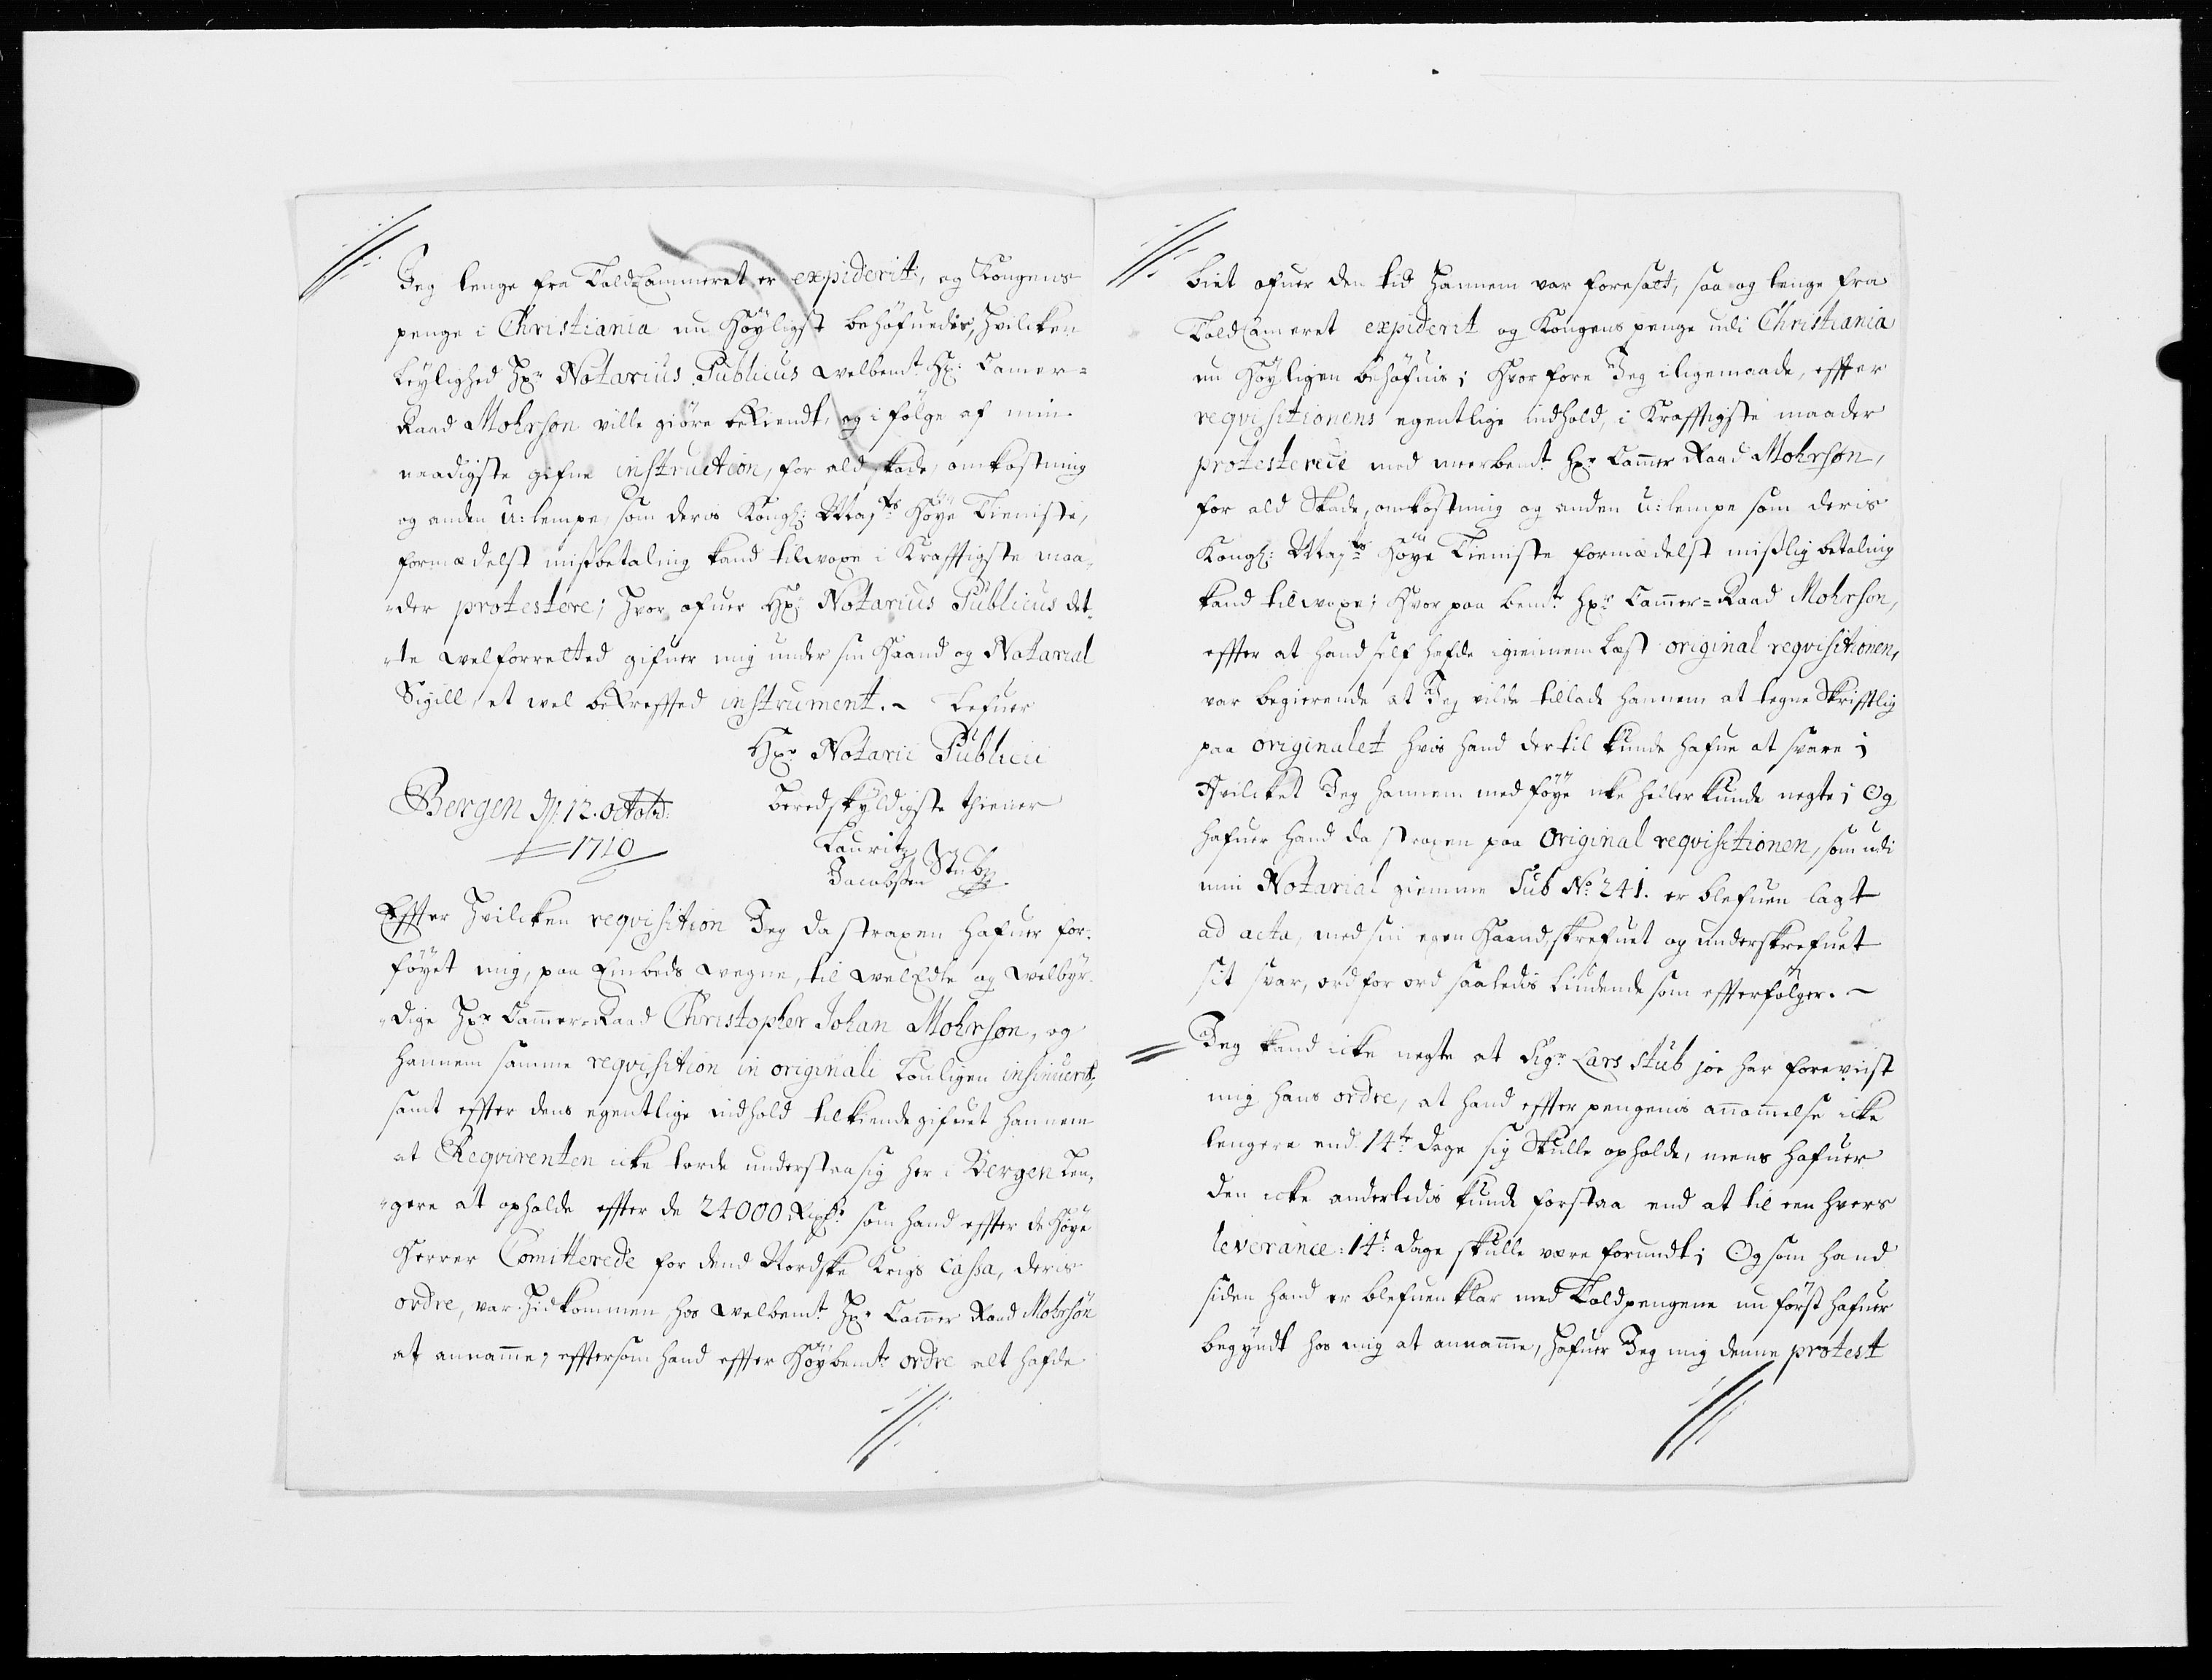 Jeg lenge fra ToldCammeret er expiderit, og Kongens
penge i Christiania nu Høyligst behøfuedis, hvilcken
Leylighed Hr Notarius Publicus welbemte Hr: Camer=
Raad Mohrson ville giöre bekiendt, og i følge af min
naadigste gifne instruction, for ald skade, omkostning
og anden u:lempe, som deris Kongl: Mayts Høye Tieniste,
formedelst misbetaling kand tilwoxe i Krafftigste maa-
der protestere; hvor ofuer Hr Notarius Publicus det-
te welforretted gifuer mig under sin Haand og Notarial
Sigill, et wel bekreffted instrument. - Lefuer
Hr Notarii Publicii
Bergen D: 12. octobr:
1710
beredskyldigste thiener
Lauritz
Jacobsen Stub
Effter hvilcken reqvisition Jeg da straxen hafuer for-
føyet mig, paa Embeds wegne, til welEdle og welbyr-
dige Hr Cammer-Raad Christopher Johan Mohrson, og
hannem samme reqvisition in originali Louligen insinuerit,
samt effter dens egentlige indhold tilkiende gifuet hannem
at Reqvirenten icke torde understaa sig her i Bergen Len-
gere at opholde effter de 24000 Rixdr som hand effter de Høye
Herrer Comitterede for dend Nordske Krigs Cassa, deris
ordre, var hidkommen, hos welbemte Hr Cammer Raad Mohrson
at annamme; efftersom hand effter Høybemte ordre alt hafde
biet ofuer den tid hannem var foresatt, saa og lenge fra
ToldCameret expiderit og Kongens penge udi Christiania
nu Høyligen behøfuis; Hvorfore Jeg iligemaade, effter
reqvisitionens egentlige indhold, i Krafftigste maader
protesterede mod meerbemte Hr Camer Raad Mohrson,
for ald Skade, omkostning og anden u:lempe som deris
Kongl: Mayts Høye Tieniste formedelst mislig betaling
kand tilwoxe; Hvor paa bemte Hr Cammer=Raad Mohrson,
effter at hand self hafde igiennem Læst original reqvisitionen,
var begierende at Jeg vilde tillade hannem at tegne Skrifftlig
paa originalet hvis hand der til kunde hafue at svare;
Hvilcket Jeg hannem med føye icke heller kunde negte; Og
hafuer hand da straxen paa Original reqvisitionen, som udi
min Notarial giemme Sub No: 241. er blefuen lagt
ad acta, med sin egen Haand, skrefuet og underskrefuet
sit svar, ord for ord saaledis Liudende som effterfølger. -
Jeg kand icke negte at Sigr Lars Stub joe har foreviist
mig hans ordre, at hand effter pengenis anammelse icke
lengere end 14te dage sig Skulle opholde, mens hafuer
den icke anderledis kunde forstaa end at til een hvers
leverance: 14te dage skulle være forundt; Og som hand
siden hand er blefuen klar med Toldpengene nu først hafuer
begyndt hos mig at annamme, hafuer Jeg mig denne protest